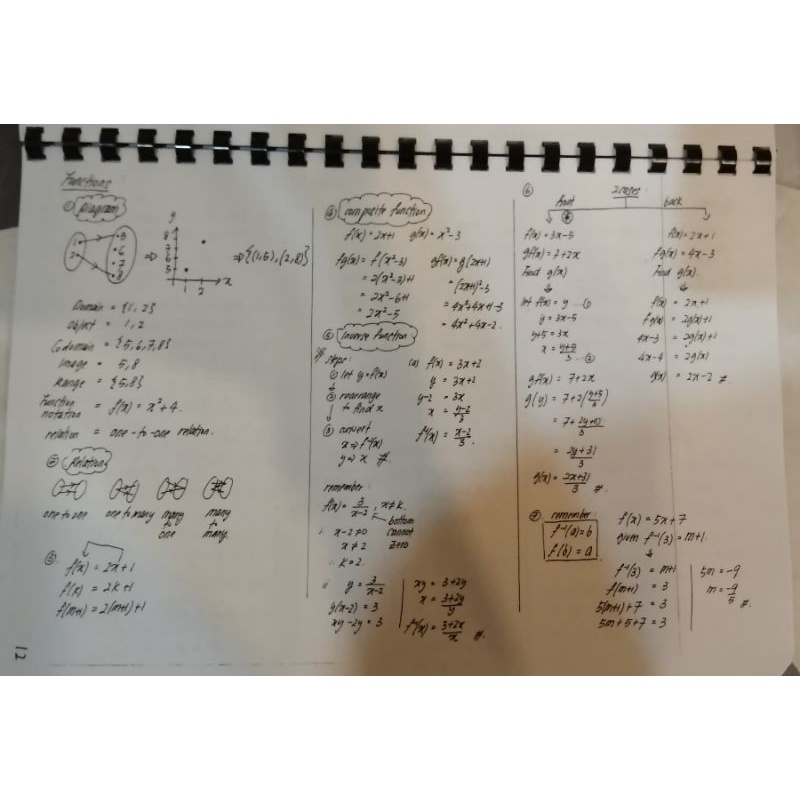 Functions
① Diagram
1
2
5
6
7
8
y
8
7
6
5
1 2
x
⇒ {(1,5),(2,8)}
Domain = {1,2}
object = 1,2
Codomain = {5,6,7,8}
Image = 5,8
Range = {5,8}
Function notation = f(x) = x²+4.
relation = one-to-one relation.
② Relation
one to one
one to many
many to one
many to many.
③
f(x) = 2x+1
f(k) = 2k+1
f(m+1) = 2(m+1)+1
12
④ composite function
f(x) = 2x+1 g(x) = x²-3
fg(x) = f(x²-3)
= 2(x²-3)+1
= 2x²-6+1
= 2x²-5
gf(x) = g(2x+1)
= (2x+1)²-3
= 4x²+4x+1-3
= 4x²+4x-2.
⑤ Inverse function
steps:
① let y=f(x)
② rearrange
to find x
③ convert
x⇒f⁻¹(x)
y⇒x #.
(a) f(x) = 3x+2
y = 3x+2
y-2 = 3x
x = y-2/3
f⁻¹(x) = x-2/3.
remember:
f(x) = 3/x-2, x≠k.
bottom
cannot
zero
i. x-2≠0
x≠2
∴ k=2.
ii y = 3/x-2
y(x-2) = 3
xy-2y = 3
xy = 3+2y
x = 3+2y/y
f⁻¹(x) = 3+2x/x #.
⑥ 2 cases:
front
back
f(x) = 3x-5
gf(x) = 7+2x
Find g(x)
let f(x) = y ...①
y = 3x-5
y+5 = 3x
x = y+5/3 ...②
gf(x) = 7+2x
g(y) = 7+2(y+5/3)
= 7+2y+10/3
= 2y+31/3
g(x) = 2x+31/3 #.
f(x) = 2x+1
fg(x) = 4x-3
Find g(x).
f(x) = 2x+1
fg(x) = 2g(x)+1
4x-3 = 2g(x)+1
4x-4 = 2g(x)
g(x) = 2x-2 #.
⑦ remember
f⁻¹(a)=b
f(b) = a
f(x) = 5x+7
given f⁻¹(3) = m+1.
f⁻¹(3) = m+1
f(m+1) = 3
5(m+1)+7 = 3
5m+5+7 = 3
5m = -9
m = -9/5 #.